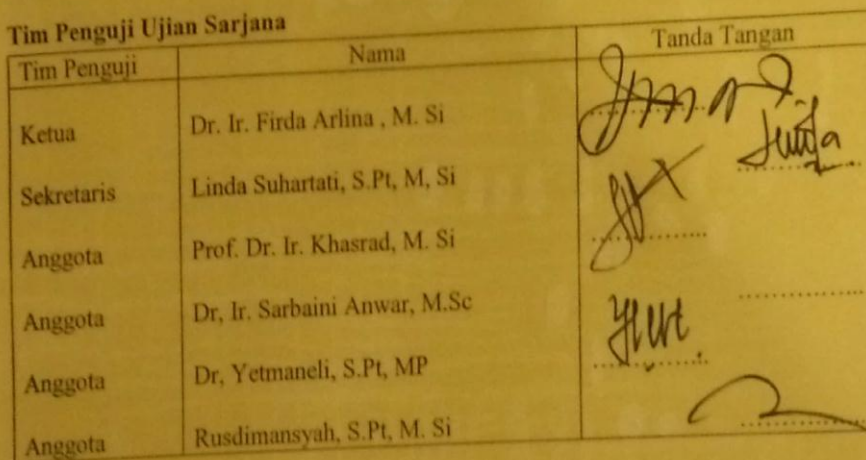 Tim Penguji Ujian Sarjana
Tim Penguji Nama Tanda Tangan
Ketua Dr. Ir. Firda Arlina , M. Si
Sekretaris Linda Suhartati, S.Pt, M, Si
Anggota Prof. Dr. Ir. Khasrad, M. Si
Anggota Dr, Ir. Sarbaini Anwar, M.Sc
Anggota Dr, Yetmaneli, S.Pt, MP
Anggota Rusdimansyah, S.Pt, M. Si